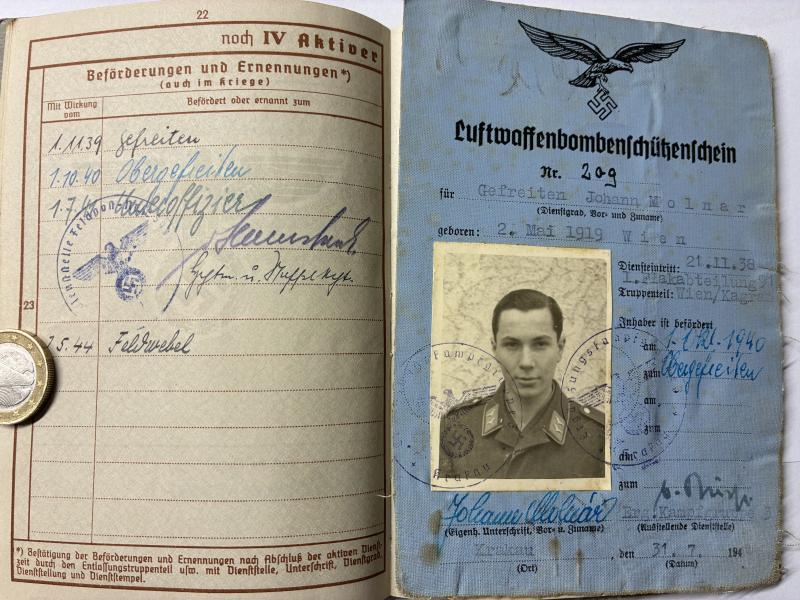 22
noch IV Aktiver
Beförderungen und Ernennungen*)
(auch im Kriege)
Mit Wirkung vom
Befördert oder ernannt zum
1.11.39 Gefreiten
1.10.40 Obergefreiten
Unteroffizier
23
Feldwebel
*) Bestätigung der Beförderungen und Ernennungen nach Abschluß der aktiven Dienst-
zeit durch den Entlassungstruppenteil usw. mit Dienststelle, Unterschrift, Dienstgrad,
Dienststellung und Dienststempel.
Luftwaffenbombenschützenschein
Nr. 209
für Gefreiten Johann Molnar
(Dienstgrad, Vor- und Zuname)
geboren: 2. Mai 1919 Wien
Diensteintritt: 21.11.38
1. Flakabteilung
Truppenteil: Wien/Kagran
Inhaber ist befördert
am 1. Okt. 1940
zum Obergefreiten
am
zum
am
zum
Johann Molnár
(Eigenh. Unterschrift, Vor- u. Zuname)
Erg. Kampfgruppe 3
(Ausstellende Dienststelle)
Krakau, den 31. 7. 194
(Ort)
(Datum)
Krakau